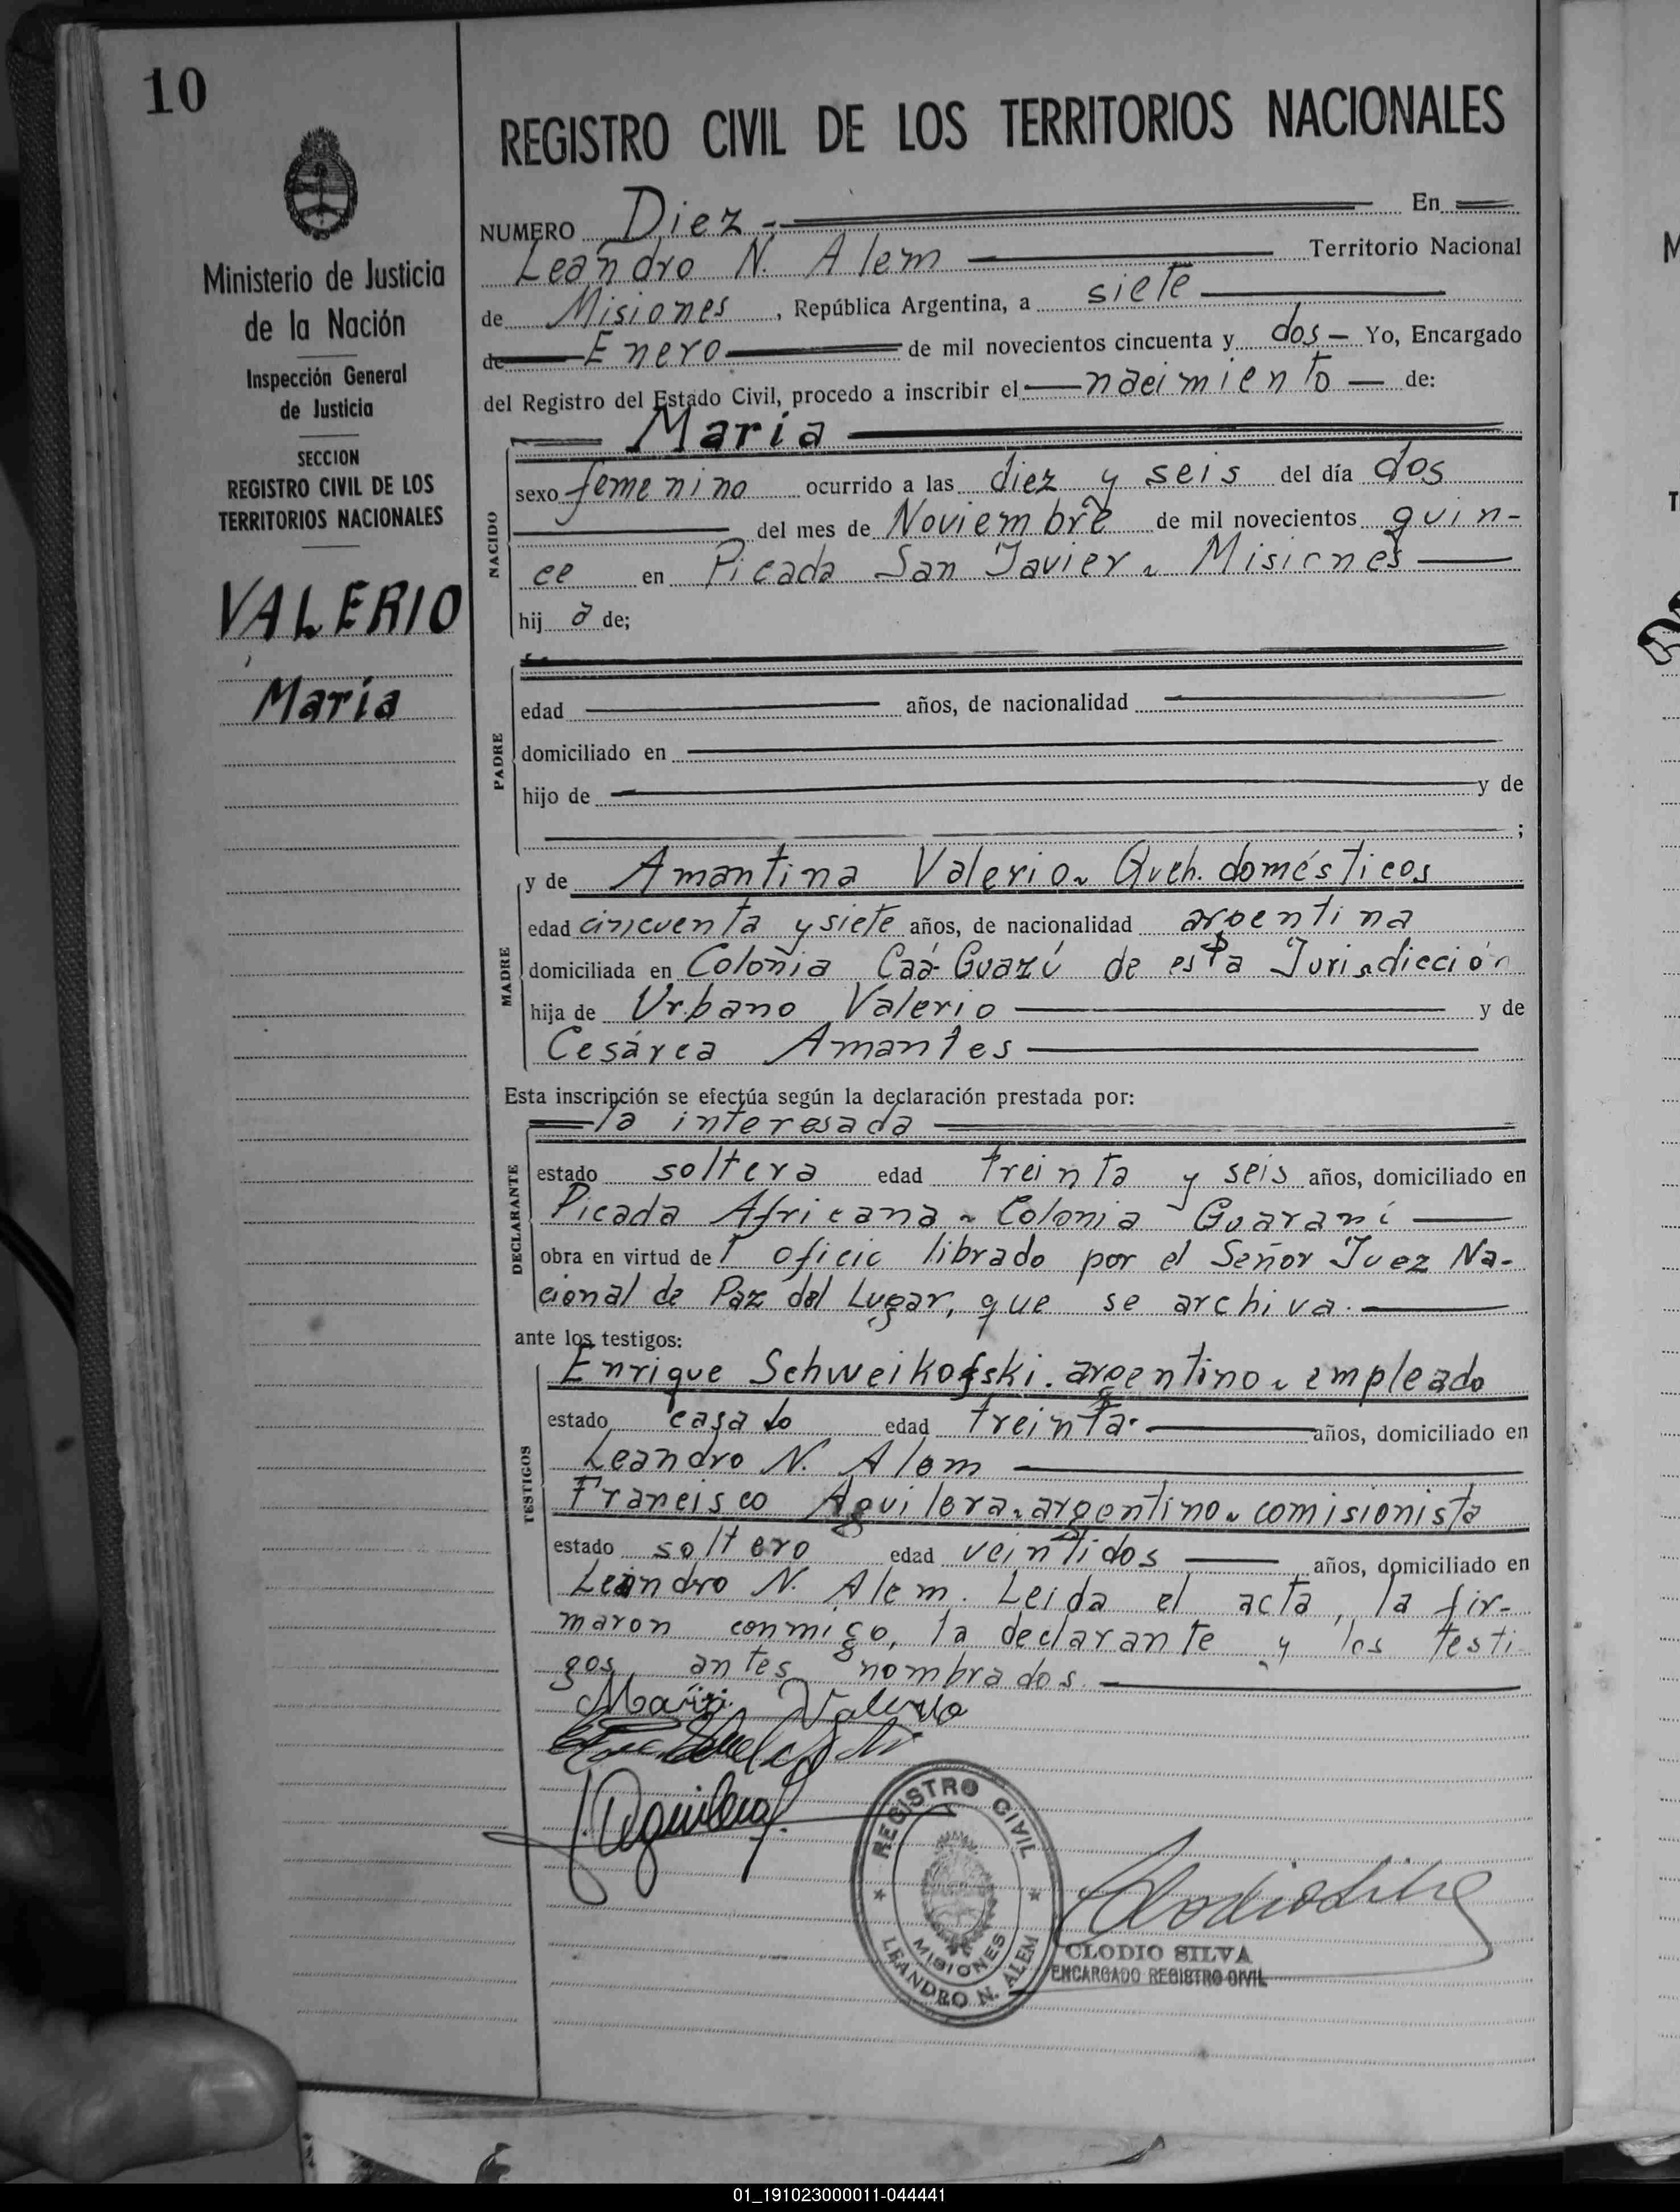 10
REGISTRO CIVIL DE LOS TERRITORIOS NACIONALES
Ministerio de Justicia
de la Nación
Inspección General
de Justicia
SECCION
REGISTRO CIVIL DE LOS
TERRITORIOS NACIONALES
VALERIO
María
NUMERO Diez En
Leandro N. Alem Territorio Nacional
de Misiones, República Argentina, a siete
de Enero de mil novecientos cincuenta y dos Yo, Encargado
del Registro del Estado Civil, procedo a inscribir el nacimiento de:
María
NACIDO
sexo femenino ocurrido a las diez y seis del día dos
del mes de Noviembre de mil novecientos quin-
ce en Picada San Javier. Misiones
hij a de;
PADRE
edad años, de nacionalidad
domiciliado en
hijo de y de
;
y de Amantina Valerio. Queh. domésticos
MADRE
edad cincuenta y siete años, de nacionalidad argentina
domiciliada en Colonia Caá-Guazú de esta Jurisdicción
hija de Urbano Valerio y de
Cesárea Amantes
Esta inscripción se efectúa según la declaración prestada por:
la interesada
DECLARANTE
estado soltera edad treinta y seis años, domiciliado en
Picada Africana. Colonia Guaraní
obra en virtud de l oficio librado por el Señor Juez Na-
cional de Paz del Lugar, que se archiva.
ante los testigos:
TESTIGOS
Enrique Schweikofski. argentino. empleado
estado casado edad treinta. años, domiciliado en
Leandro N. Alem
Francisco Aguilera. argentino. comisionista
estado soltero edad veintidos años, domiciliado en
Leandro N. Alem. Leida el acta, la fir-
maron conmigo, la declarante y los testi
gos antes nombrados.
María Valerio
J. Aguilera
REGISTRO CIVIL
MISIONES
LEANDRO N. ALEM
Clodio Silva
CLODIO SILVA
ENCARGADO REGISTRO CIVIL
01_191023000011-044441